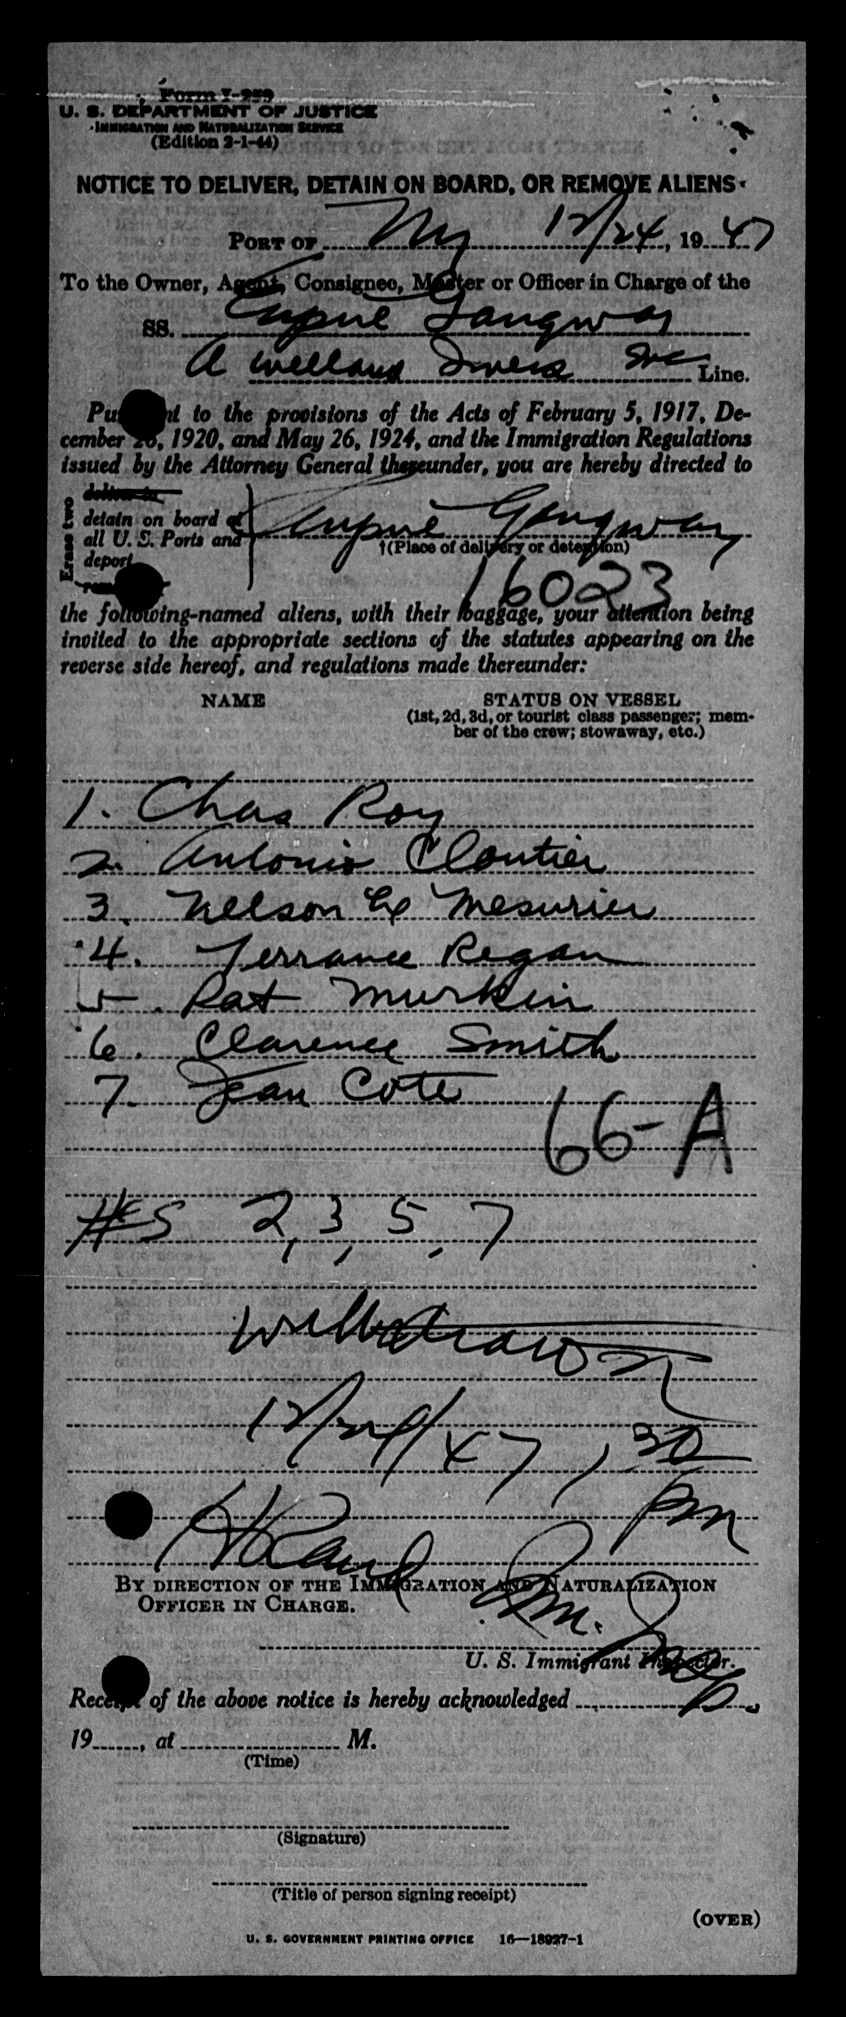 Form I-259
U. S. DEPARTMENT OF JUSTICE
IMMIGRATION AND NATURALIZATION SERVICE
(Edition 2-1-44)
NOTICE TO DELIVER, DETAIN ON BOARD, OR REMOVE ALIENS
PORT OF NY 12/24, 1947
To the Owner, Agent, Consignee, Master or Officer in Charge of the
SS. Gangway
A Line.
Pu nt to the provisions of the Acts of February 5, 1917, De-
cember 26, 1920, and May 26, 1924, and the Immigration Regulations
issued by the Attorney General thereunder, you are hereby directed to
Erase two
deliver to
detain on board at
all U. S. Ports and
deport
Gangway
†(Place of delivery or detention)
16023
the following-named aliens, with their baggage, your attention being
invited to the appropriate sections of the statutes appearing on the
reverse side hereof, and regulations made thereunder:
NAME STATUS ON VESSEL
(1st, 2d, 3d, or tourist class passenger; mem-
ber of the crew; stowaway, etc.)
1. Chas Roy
2. Antonio Cloutier
3. Nelson Le Mesurier
4. Terrance Regan
5. Pat Murkin
6. Clarence Smith
7. Jean Cote
66-A
#s 2, 3, 5, 7
Withdrawn
12/24/47, 1 30
pm
BY DIRECTION OF THE IMMIGRATION AND NATURALIZATION
OFFICER IN CHARGE.
U. S. Immigrant Inspector.
Receipt of the above notice is hereby acknowledged
19, at M.
(Time)
(Signature)
(Title of person signing receipt)
(OVER)
U. S. GOVERNMENT PRINTING OFFICE 16—18927-1